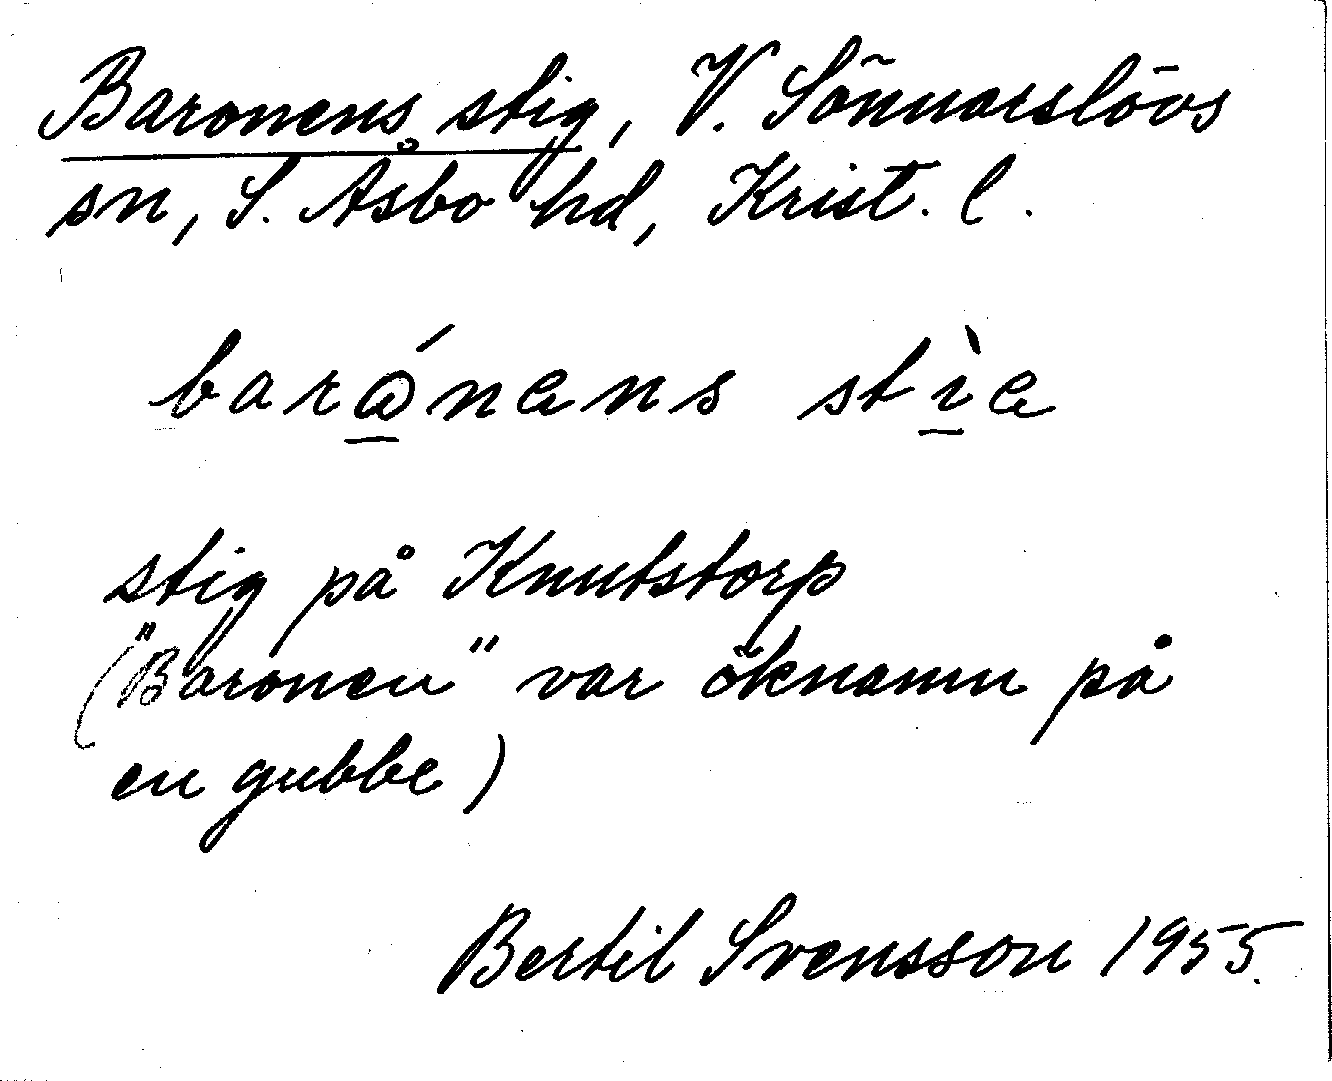 Baronens stig, V. Sönnarslövs
sn, S. Åsbo hd, Krist. l.
barɷ̲́nens stì̲e
stig på Knutstorp
("Baronen" var öknamn på
en gubbe)
Bertil Svensson 1955.